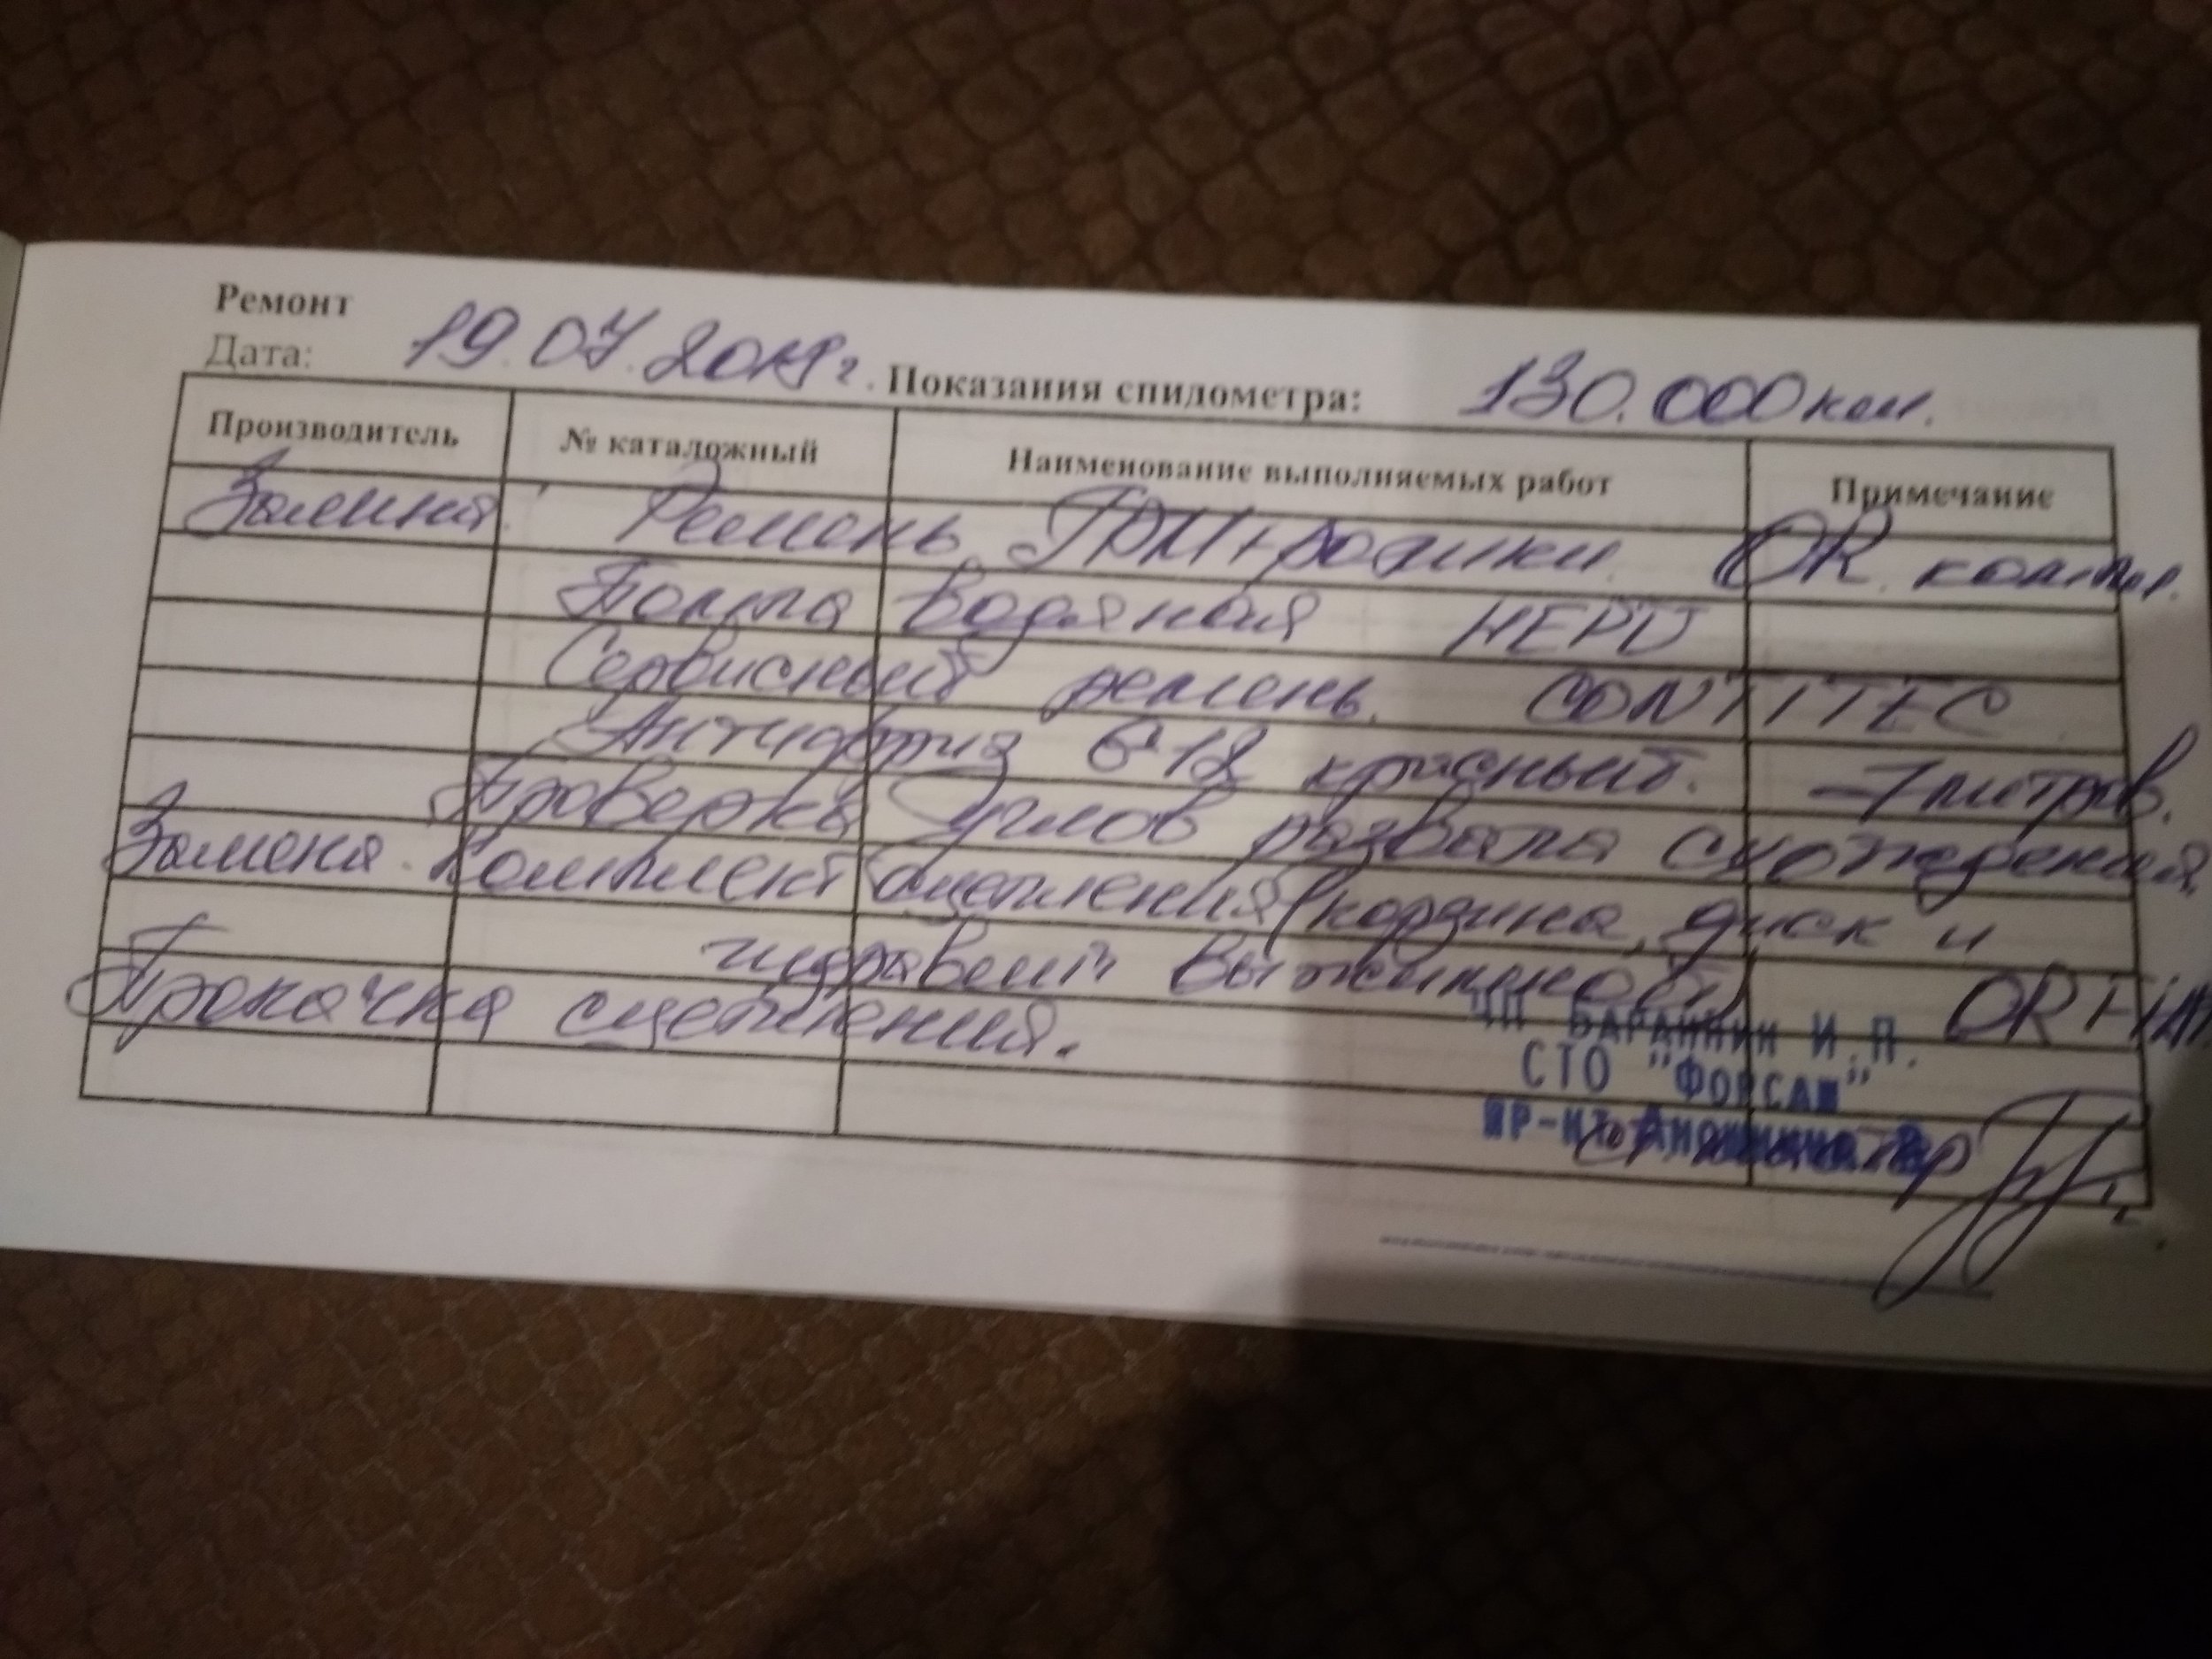 Ремонт
Дата: 19.07.2019г. Показания спидометра: 130.000 км.
Производитель № каталожный Наименование выполняемых работ Примечание
Замена. Ремень ГРМ+ролики. OR.
Помпа водяная HEPU
Сервисный ремень. CONTITEC
Антифриз G12 красный. -7 литров.
Проверка углов развала схождения.
Замена. Комплект сцепления (корзина, диск и
выжимной)
Прокачка сцепления.
ЧП БАРАННИК И.П.
СТО "ФОРСАЖ"